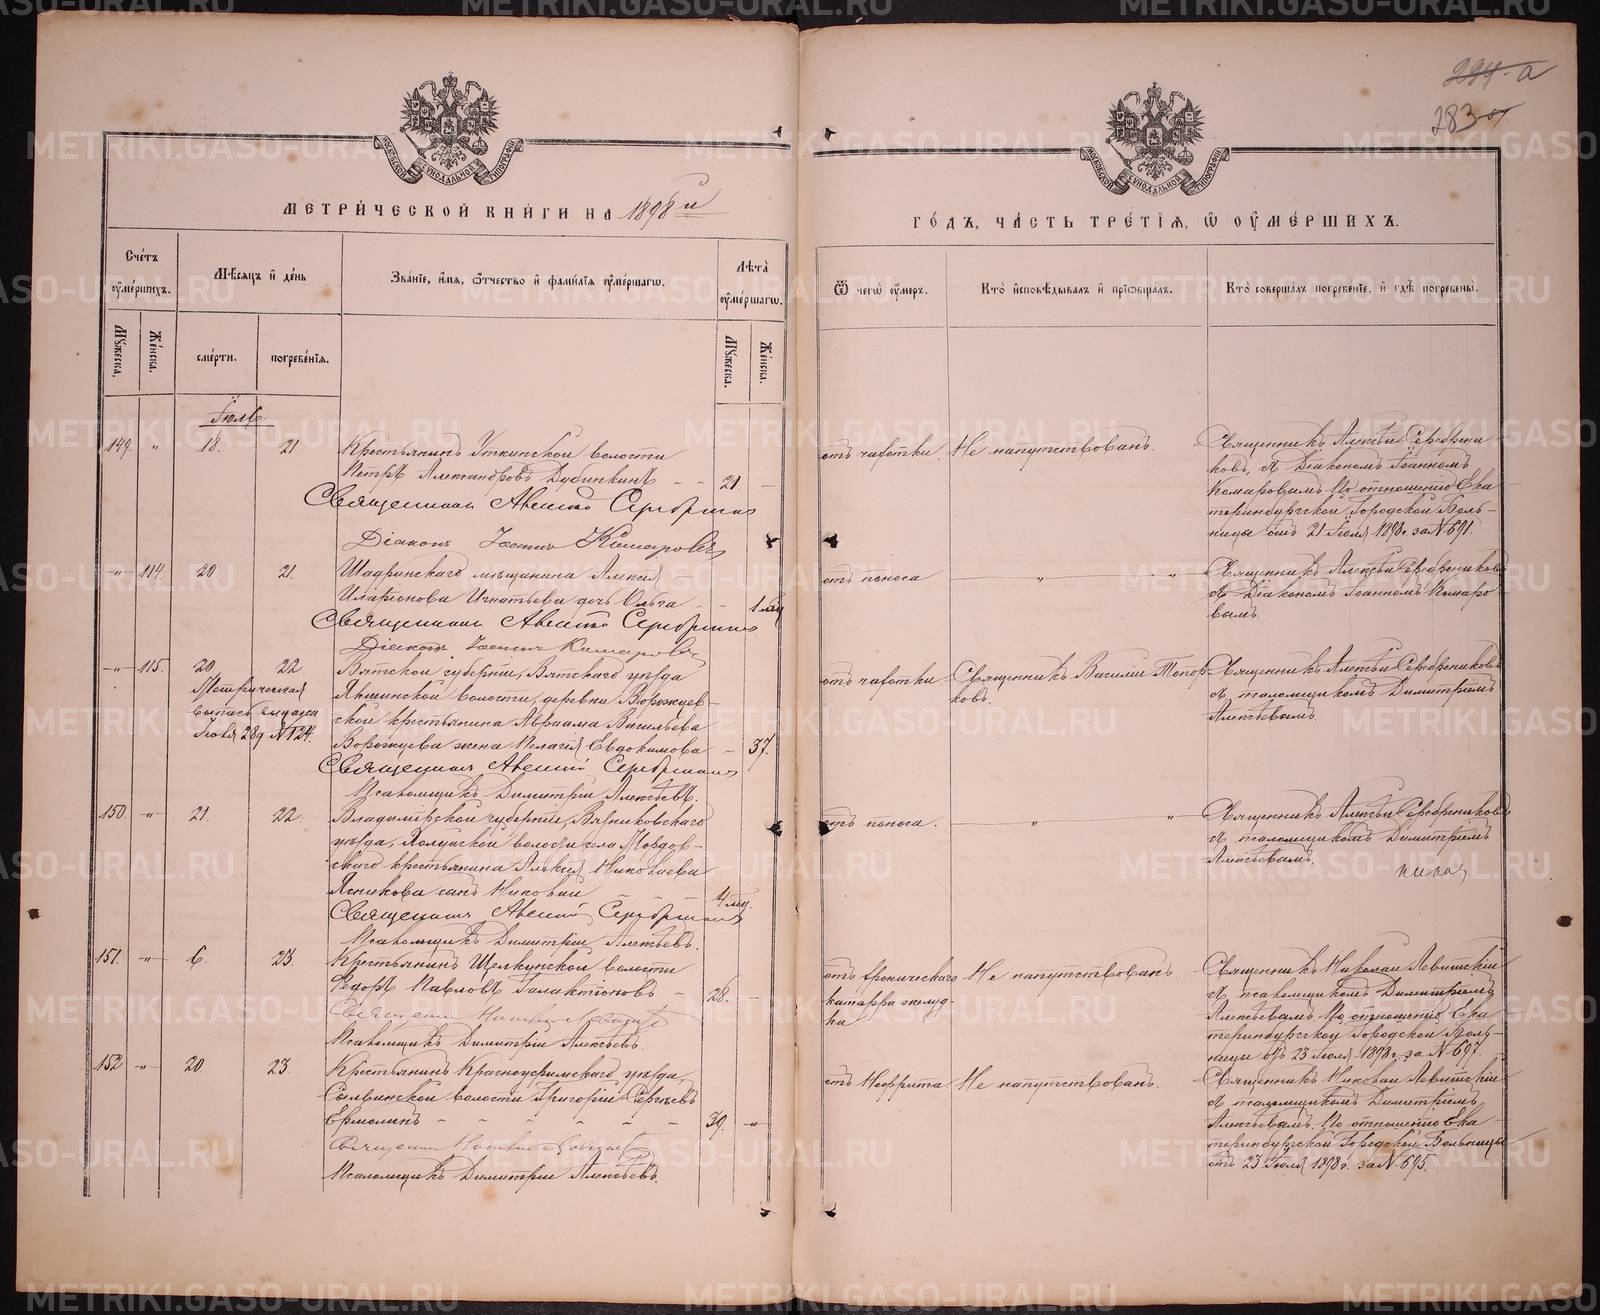 294-а
283 от
МОСКОВСКОЙ СУНОДАЛЬНОЙ ТИПОГРАФІИ
МЕТРИЧЕСКОЙ КНИГИ НА 1898й
Счетъ оумершихъ.
Мѣсяцъ и день
Званіе, имя, ѿчество и фамиліа оумершагω.
Лѣта оумершагω.
Мꙋжеска.
Женска.
смерти.
погребеніѧ.
Мꙋжеска.
Женска.
Іюль
149. " 18. 21.
Крестьянинъ Уткинской волости
Петръ Александровъ Дубинкинъ - - 21. -
Священникъ Алексій Серебрениковъ
Діаконъ Іоаннъ Комаровъ
-"- 114. 20 21.
Шадринскаго мѣщанина Алексѣя
Иларіонова Игнатьева дочь Ольга - - 1 мц
Священникъ Алексій Серебрениковъ
Діаконъ Іоаннъ Комаровъ
-"- 115. 20 22
Метрическая
выпись выдана
Іюля 28 д № 124.
Вятской губерніи, Вятскаго уѣзда
волости, деревни Ворожцев-
ской крестьянина Авраама Васильева
Ворожцева жена Пелагія Евдокимова - 37.
Священникъ Алексій Серебрениковъ
Псаломщикъ Димитрій Алексѣевъ.
150. -"- 21. 22.
Владимірской губерніи, Вязниковскаго
уѣзда, Холуйской волости села Мордов-
скаго крестьянина Алексѣя Николаева
Ясникова сынъ Николай - - 4 мц.
Священникъ Алексій Серебрениковъ
Псаломщикъ Димитрій Алексѣевъ.
151. -"- 6. 23.
Крестьянинъ Щелкунской волости
Ѳедоръ Павловъ Галактіоновъ - 28. -
Священникъ Николай Левитскій
Псаломщикъ Димитрій Алексѣевъ.
152 -"- 20 23.
Крестьянинъ Красноуфимскаго уѣзда,
Сылвинской волости Григорій Сергѣевъ
Ермолинъ - - - - - - 30. -"-
Священникъ Николай Левитскій
Псаломщикъ Димитрій Алексѣевъ.
ГОДЪ, ЧАСТЬ ТРЕТІѦ, Ѡ ОУМЕРШИХЪ.
МОСКОВСКОЙ СУНОДАЛЬНОЙ ТИПОГРАФІИ
Ѿ чегω оумеръ.
Кто исповѣдывалъ и пріωбщалъ.
Кто совершалъ погребеніе, и гдѣ погребены.
отъ чахотки. Не напутствованъ.
Священникъ Алексѣй Серебрени
ковъ, съ Діакономъ Іоанномъ
Комаровымъ. По отношенію Ека
теринбургской Городской Боль-
ницы отъ 21 Іюля 1898 г. за № 691.
отъ поноса — " — " —
Священникъ Алексѣй Серебрениковъ
съ Діакономъ Іоанномъ Комаро-
вымъ.
отъ чахотки
Священникъ Василій Топор-
ковъ.
Священникъ Алексѣй Серебрениковъ
съ псаломщикомъ Димитріемъ
Алексѣевымъ.
отъ поноса. — " — " —
Священникъ Алексѣй Серебрениковъ
съ псаломщикомъ Димитріемъ
Алексѣевымъ.
отъ хроническаго
катарра желуд-
ка
Не напутствованъ.
Священникъ Николай Левитскій
съ псаломщикомъ Димитріемъ
Алексѣевымъ. По отношенію Ека
теринбургской Городской Боль-
ницы отъ 23 Іюля 1898 г. за № 697.
отъ Нефрита Не напутствованъ.
Священникъ Николай Левитскій
съ псаломщикомъ Димитріемъ
Алексѣевымъ. По отношенію Ека
теринбургской Городской Больницы
отъ 23 Іюля 1898 г. за № 695.
METRIKI.GASO-URAL.RU